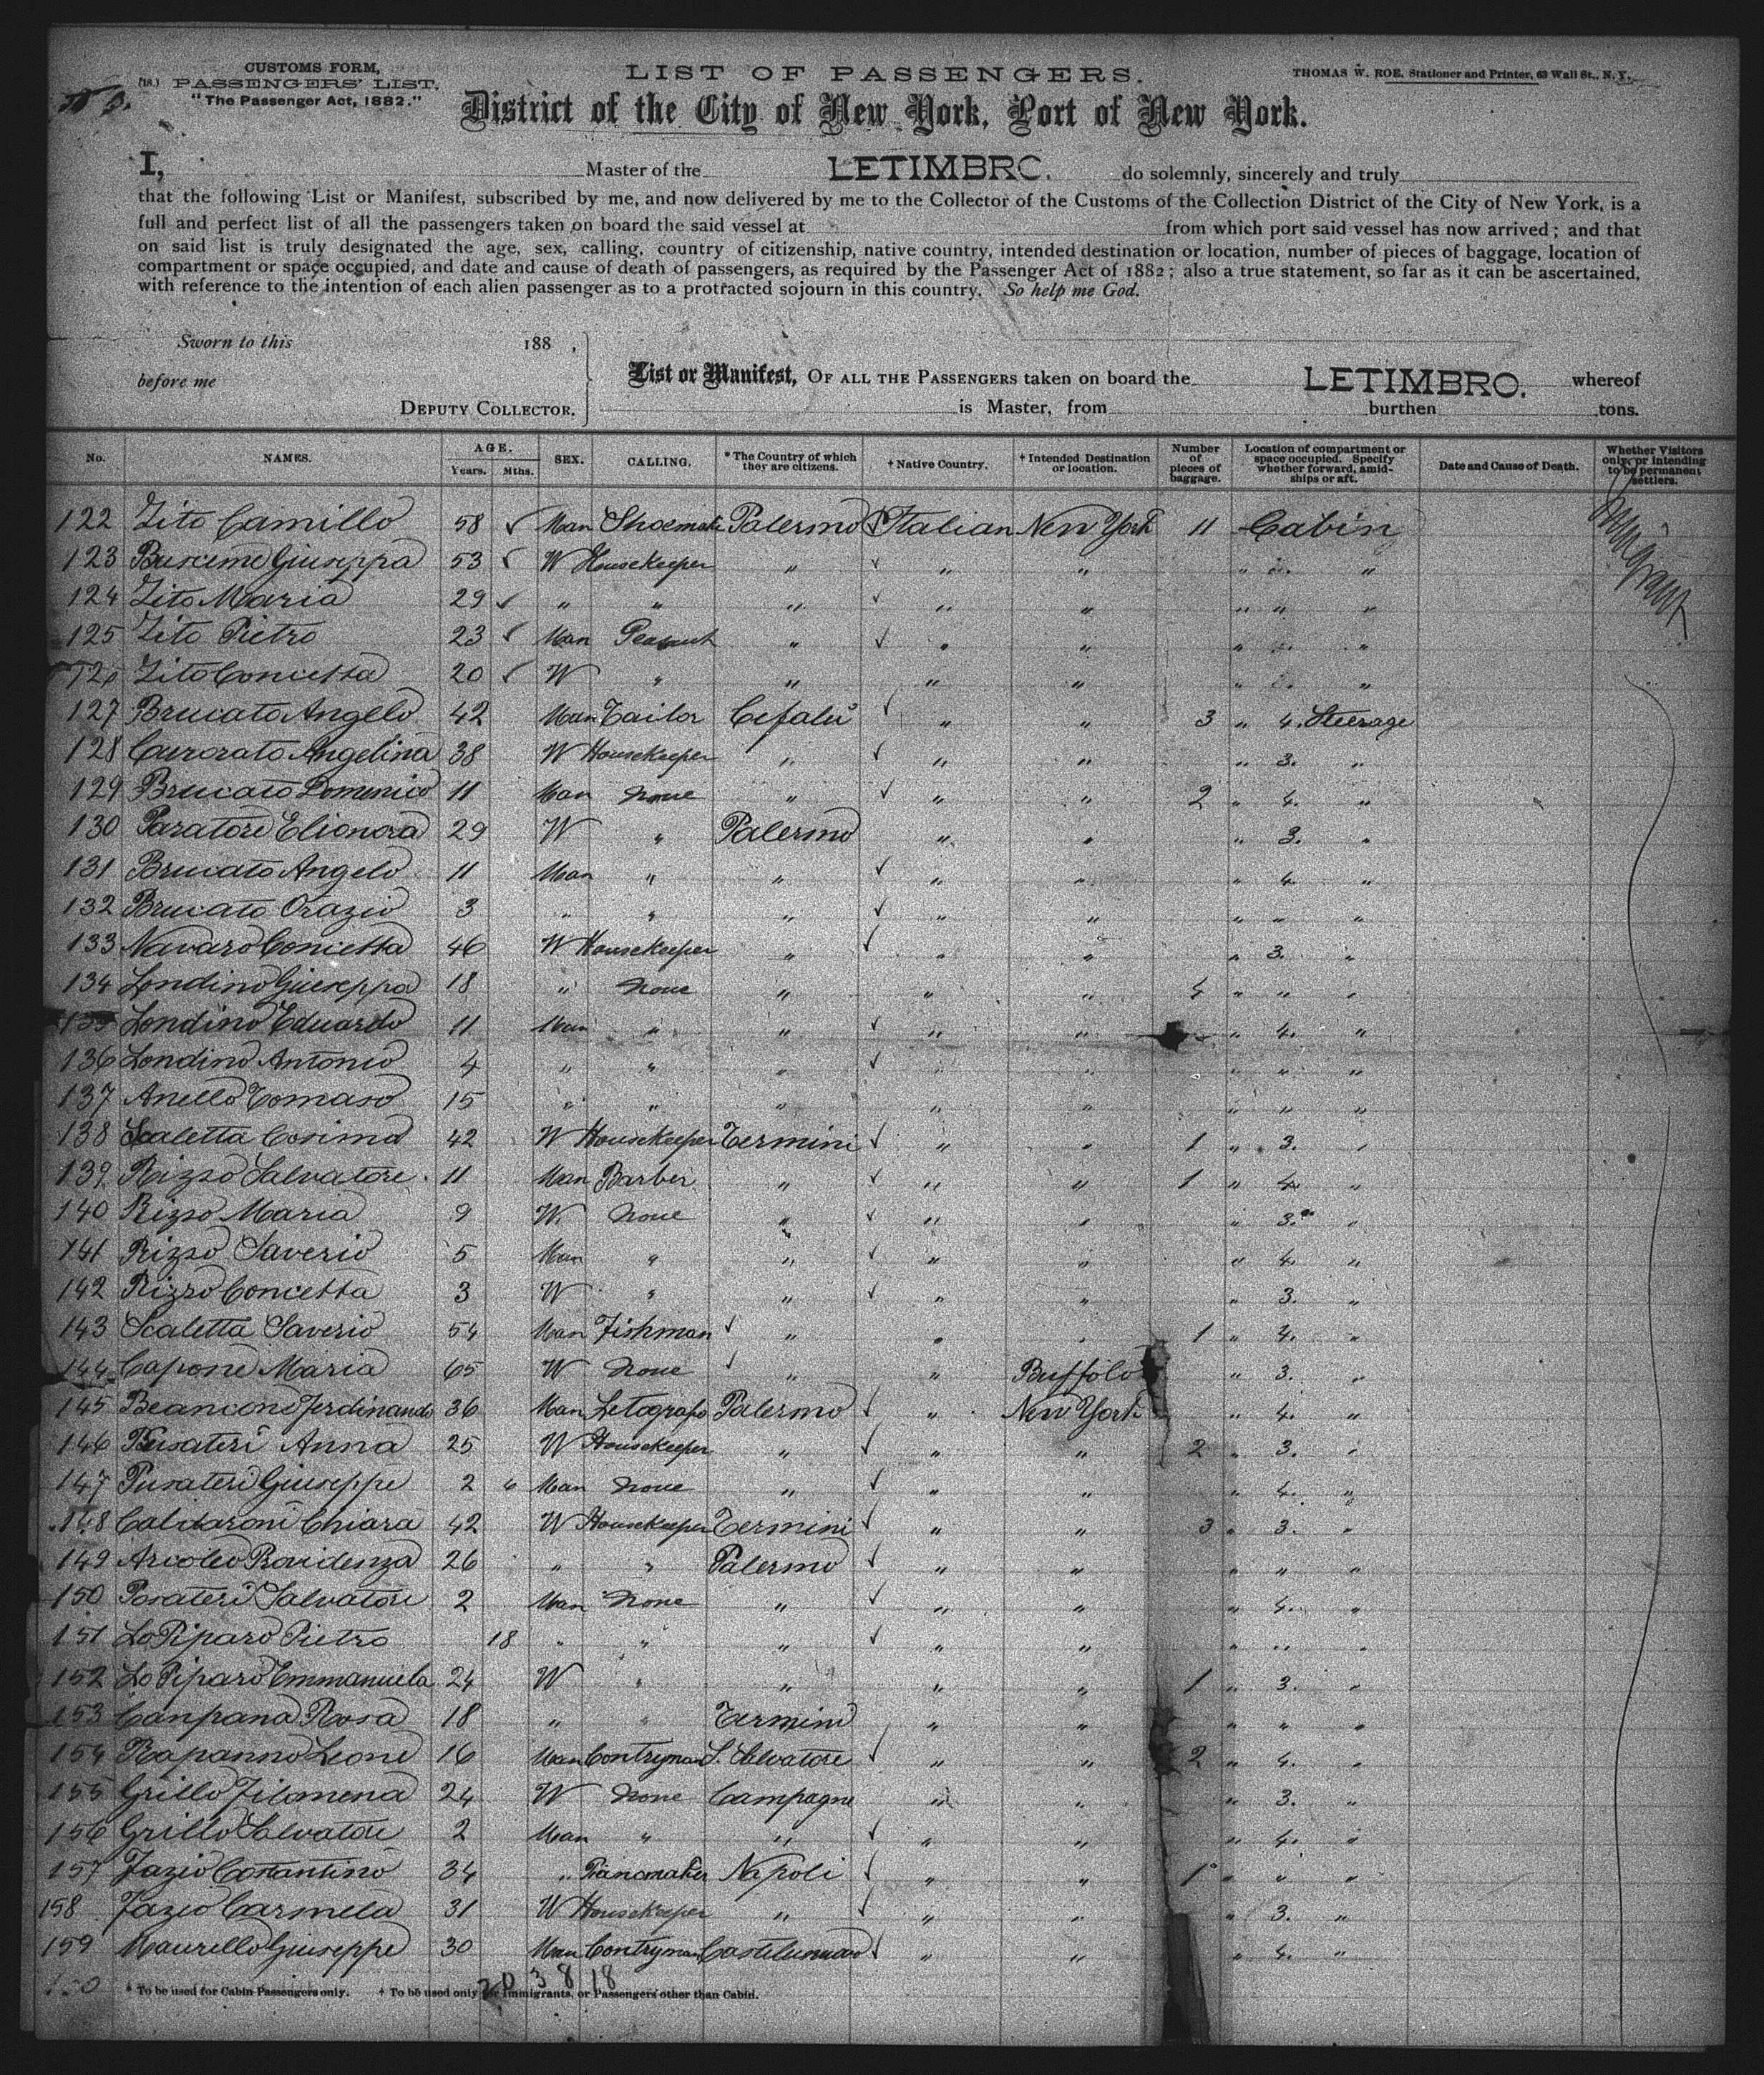 CUSTOMS FORM,
(18.) PASSENGERS' LIST.
"The Passenger Act, 1882."
LIST OF PASSENGERS.
THOMAS W. ROE, Stationer and Printer, 63 Wall St., N. Y.
District of the City of New York, Port of New York.
I, Master of the LETIMBRO. do solemnly, sincerely and truly
that the following List or Manifest, subscribed by me, and now delivered by me to the Collector of the Customs of the Collection District of the City of New York, is a
full and perfect list of all the passengers taken on board the said vessel at from which port said vessel has now arrived; and that
on said list is truly designated the age, sex, calling, country of citizenship, native country, intended destination or location, number of pieces of baggage, location of
compartment or space occupied, and date and cause of death of passengers, as required by the Passenger Act of 1882; also a true statement, so far as it can be ascertained,
with reference to the intention of each alien passenger as to a protracted sojourn in this country. So help me God.
Sworn to this 188 ,
before me
DEPUTY COLLECTOR.
List or Manifest, OF ALL THE PASSENGERS taken on board the LETIMBRO. whereof
is Master, from burthen tons.
No. NAMES. AGE. Years. Mths. SEX. CALLING. *The Country of which they are citizens. †Native Country. †Intended Destination or location. Number of pieces of baggage. Location of compartment or space occupied. Specify whether forward, amidships or aft. Date and Cause of Death. Whether Visitors only, or intending to be permanent settlers.
122 Zito Camillo 58 ✓ Man Shoemak Palermo ✓ Italian New York 11 Cabin
123 Busceme Giuseppa 53 ✓ W Housekeeper " ✓ " " " "
124 Zito Maria 29 ✓ " " " ✓ " " " " "
125 Zito Pietro 23 ✓ Man Peasant " ✓ " " " "
126 Zito Concetta 20 ✓ W " " " " " "
127 Brucato Angelo 42 Man Tailor Cefalù ✓ " " 3 " 4. Steerage
128 Curorato Angelina 38 W Housekeeper " ✓ " " " 3. "
129 Brucato Domenico 11 Man None " ✓ " " 2 " 4. "
130 Paratore Elionora 29 W " Palermo " " " 3. "
131 Brucato Angelo 11 Man " " ✓ " " " 4 "
132 Brucato Orazio 3 " " " ✓ " " " " "
133 Navaro Concetta 46 W Housekeeper " ✓ " " " 3. "
134 Londino Giuseppa 18 " None " " " 4 " " "
135 Londino Eduardo 11 Man " " ✓ " " " 4. "
136 Londino Antonio 4 " " " ✓ " " " " "
137 Anello Tomaso 15 " " " " " " " "
138 Scaletta Cosima 42 W Housekeeper Termini ✓ " " 1 " 3. "
139 Rizzo Salvatore 11 Man Barber " ✓ " " 1 " 4. "
140 Rizzo Maria 9 W. None " ✓ " " " 3. "
141 Rizzo Saverio 5 Man " " ✓ " " " 4. "
142 Rizzo Concetta 3 W " " ✓ " " " 3. "
143 Scaletta Saverio 54 Man Fishman ✓ " " " 1 " 4. "
144 Capone Maria 65 W None ✓ " " Buffolo " 3. "
145 Beancone Ferdinando 36 Man Letografo Palermo ✓ " New York " 4. "
146 Pusateri Anna 25 W Housekeeper " ✓ " " 2 " 3. "
147 Pusateri Giuseppe 2 6 Man None " ✓ " " " 4. "
148 Caldaroni Chiara 42 W Housekeeper Termini ✓ " " 3 " 3. "
149 Arcoleo Providenza 26 " " Palermo ✓ " " " " "
150 Posateri Salvatore 2 Man None " ✓ " " " 4. "
151 Lo Piparo Pietro 18 " " " ✓ " " " " "
152 Lo Piparo Emmanuela 24 W " " " " 1 " 3. "
153 Canpana Rosa 18 " " Termini " " " " "
154 Rapanno Leone 16 Man Contryman S. Salvatore ✓ " " 2 " 4. "
155 Grillo Filomena 24 W None Campagne " " " 3. "
156 Grillo Salvatore 2 Man " " ✓ " " " 4. "
157 Fazio Costantino 34 " Pianomaker Napoli ✓ " " 1 " " "
158 Fazio Carmela 31 W Housekeeper " ✓ " " " 3. "
159 Maurello Giuseppe 30 Man Contryman ✓ " " " 4. "
* To be used for Cabin Passengers only. † To be used only for Immigrants, or Passengers other than Cabin.